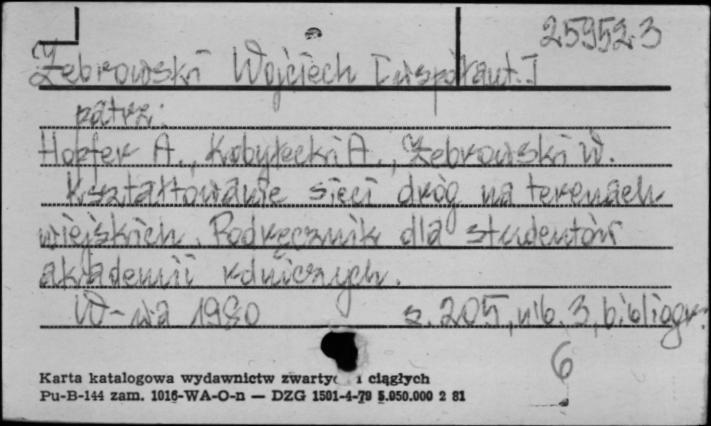 259523
Żebrowski Wojciech [współaut.]
patrz:
Hopfer A., Kobyłecki A., Żebrowski W.
Kształtowanie sieci dróg na terenach
wiejskich. Podręcznik dla studentów
akademii rolniczych.
W-wa 1980 s. 205, nlb. 3, bibliogr.
6
Karta katalogowa wydawnictw zwartyc i ciągłych
Pu-B-144 zam. 1016-WA-O-n — DZG 1501-4-79 5.050.000 2 81